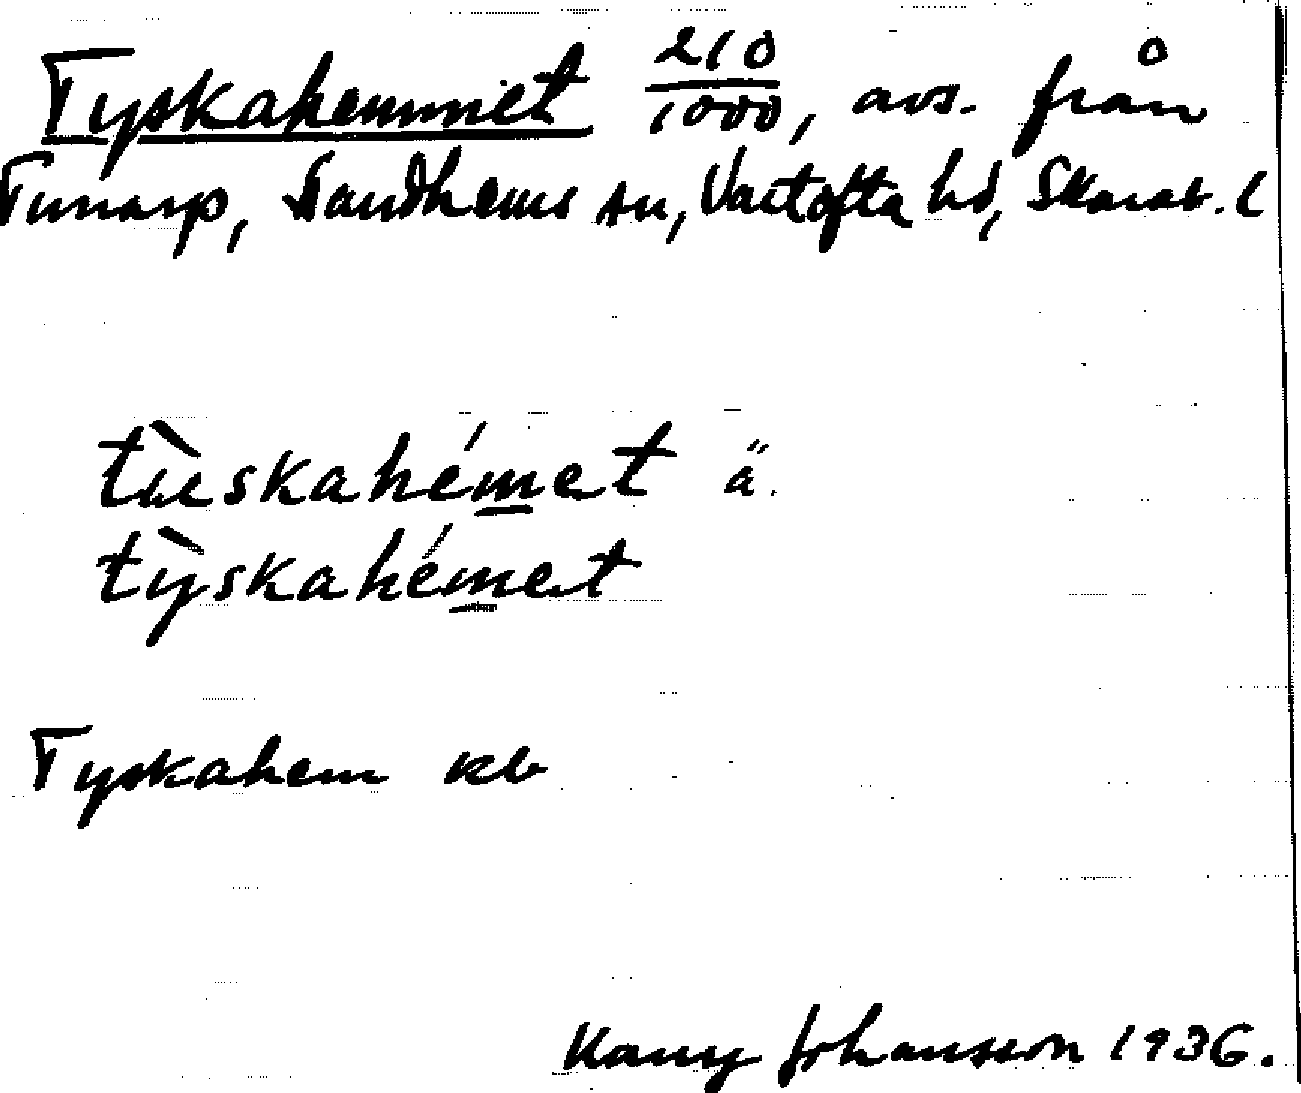 Tyskahemmet 210/1000, avs. från
Tunarp, Sandhems sn, Vartofta hd, Skarab. l
tùeskahémet ä.
tỳskahémet
Tyskahem kb
Johansson 1936.